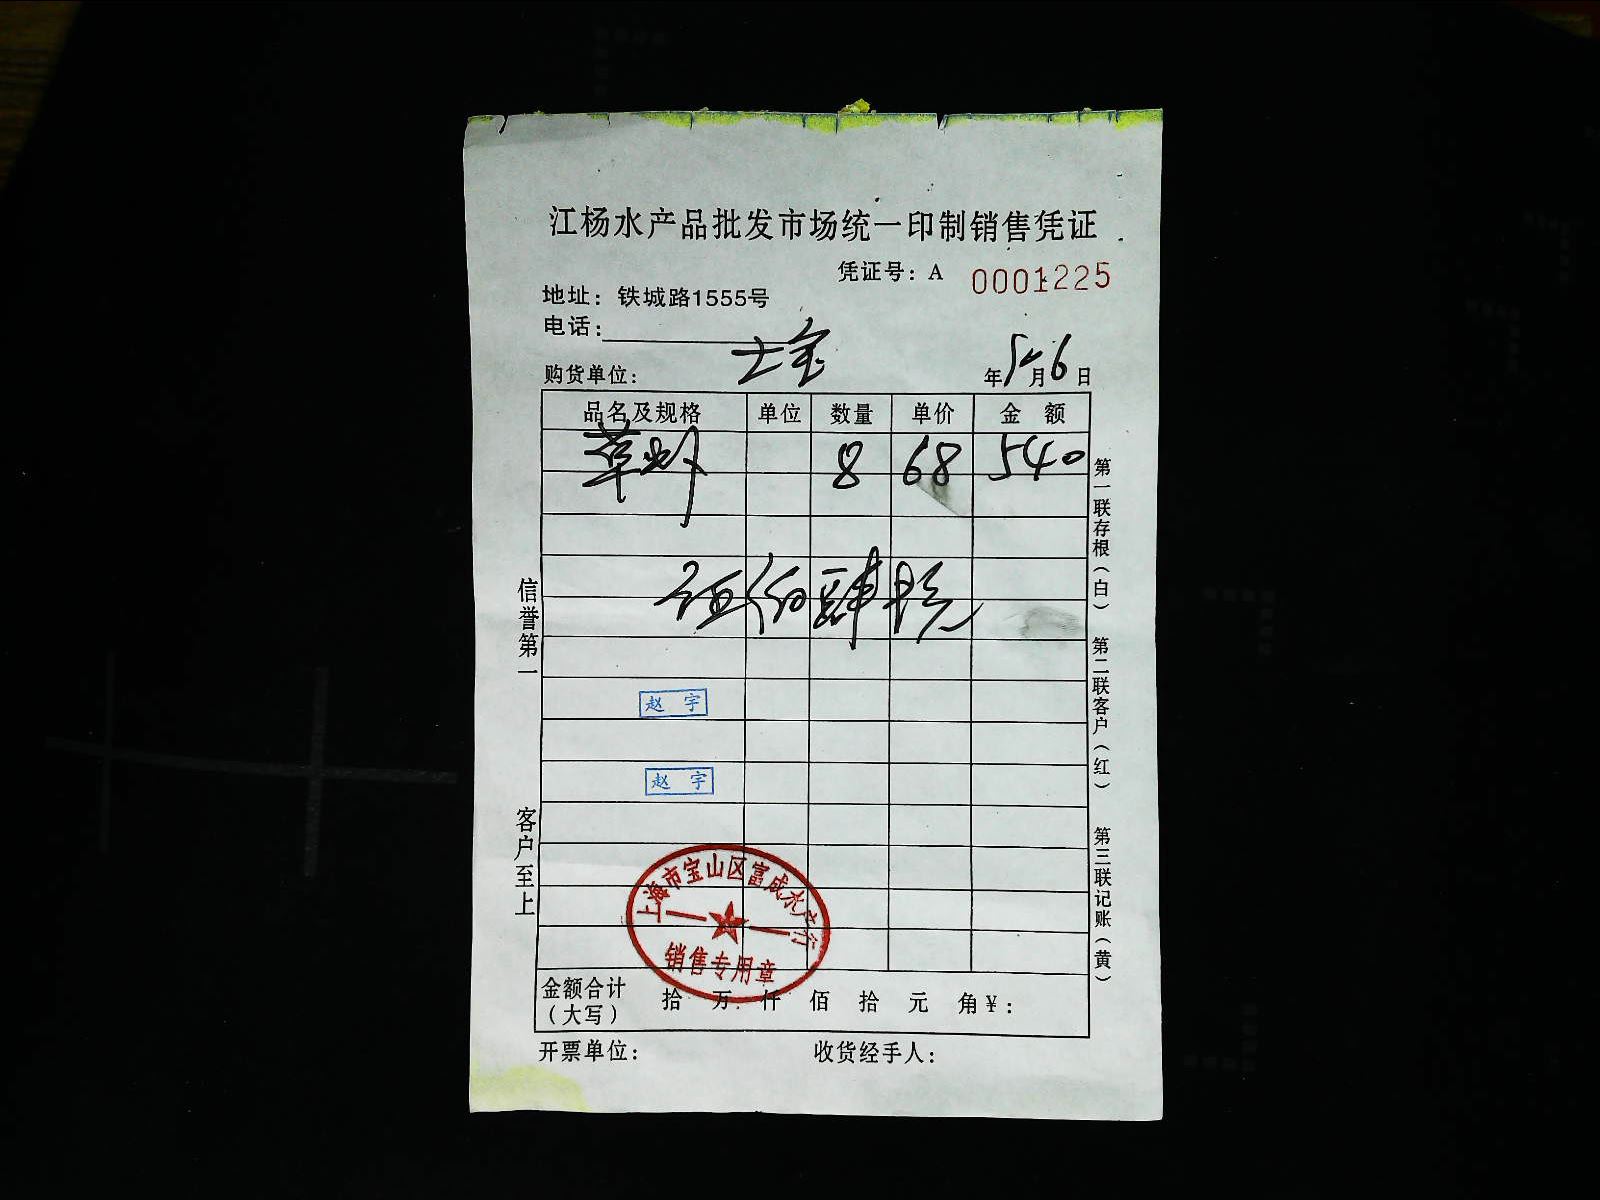 江杨水产品批发市场统一印制销售凭证
凭证号：A 0001225
地址：铁城路1555号
电话：
购货单位： 年5月6日
品名及规格 单位 数量 单价 金 额
草虾 8 68 540
伍佰肆拾元
赵 宇
赵 宇
上海市宝山区富成水产行
销售专用章
金额合计（大写） 拾 万 仟 佰 拾 元 角￥：
开票单位： 收货经手人：
信誉第一
客户至上
第一联存根（白）
第二联客户（红）
第三联记账（黄）